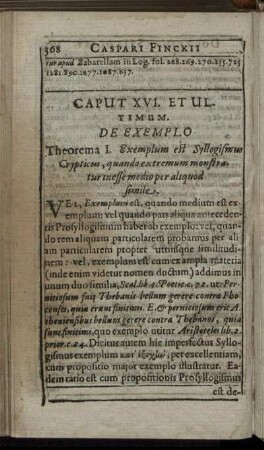 308 CASPARI FINCKII
tur apud Zabarellam in Log. fol. 228.269.270.255.725
1281.890.1277.1087.657.
CAPUT XVI. ET UL-
TIMUM.
DE EXEMPLO
Theorema I. Exemplum est Syllogismus
Crypticus, quando extremum monstra-
tur inesse medio per aliquod
simile.
VEL, Exemplum est, quando medium est ex-
emplum: vel quando pars aliqua anteceden-
tis Prosyllogismum habet ab exemplo: vel, quan-
do rem aliquam particularem probamus per ali-
am particularem propter utriusque similitudi-
nem: vel, exemplum est cum ex ampla materia
(inde enim videtur nomen doctum) addimus in
unum duo similia, Scal. lib. 4. Poetic. c. 22. ut: Per-
niciosum fuit Thebanis bellum gerere contra Pho-
censes, quia erant finitimi. E. & perniciosum erit A-
theniensibus bellum gerere contra Thebanos, quia
sunt finitimi, quo exemplo utitur Aristoteles lib. 2.
prior. c. 24. Dicitur autem hic imperfectus Syllo-
gismus exemplum κατ' ἐξοχὴν, per excellentiam,
cum propositio major exemplo illustratur. Ea-
dem ratio est cum propositionis Prosyllogismus
est de-